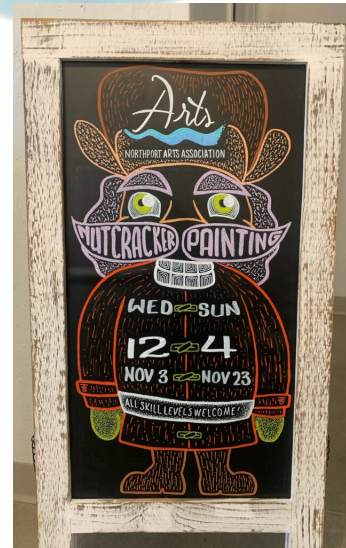 Arts
NORTHPORT ARTS ASSOCIATION
NUTCRACKER PAINTING
WED SUN
12 4
NOV 3 NOV 23
ALL SKILL LEVELS WELCOME!